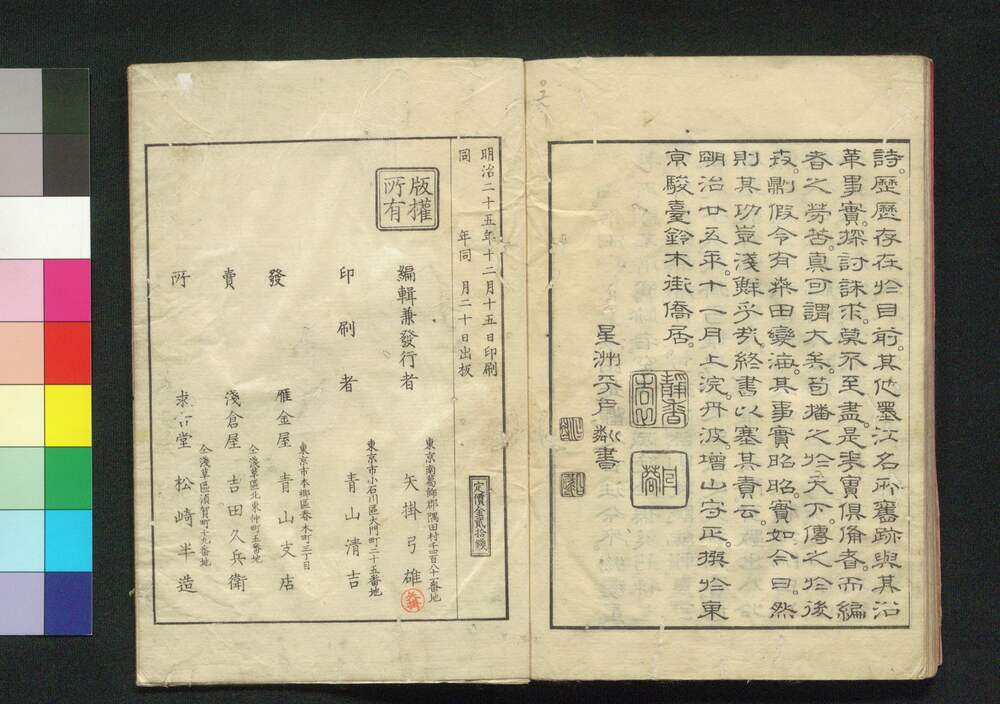 詩歷歷存在於目前其他墨江名所舊跡與其沿
革事實探討誅求莫不至盡是華實俱備者而編
者之勞苦真可謂大矣苟播之於天下傳之於後
茲則假令有桑田變海其事實昭昭實如今日然
則其功豈淺鮮乎哉終書以塞其責云
明治廿五年十一月上浣丹波增山守正撰於東
京駿臺鈴木街僑居
星洲
書
明治二十五年十二月十五日印刷
同年同月二十日出板
定價金貳拾錢
版權所有
編輯兼發行者
東京南葛飾郡隅田村千四百八十一番地
矢掛弓雄
印刷者
東京市小石川區大門町二十五番地
青山清吉
發賣所
東京市本鄉區春木町三丁目
雁金屋 青山支店
仝淺草區北東仲町五番地
淺倉屋 吉田久兵衛
仝淺草區須賀町十九番地
求古堂 松崎半造